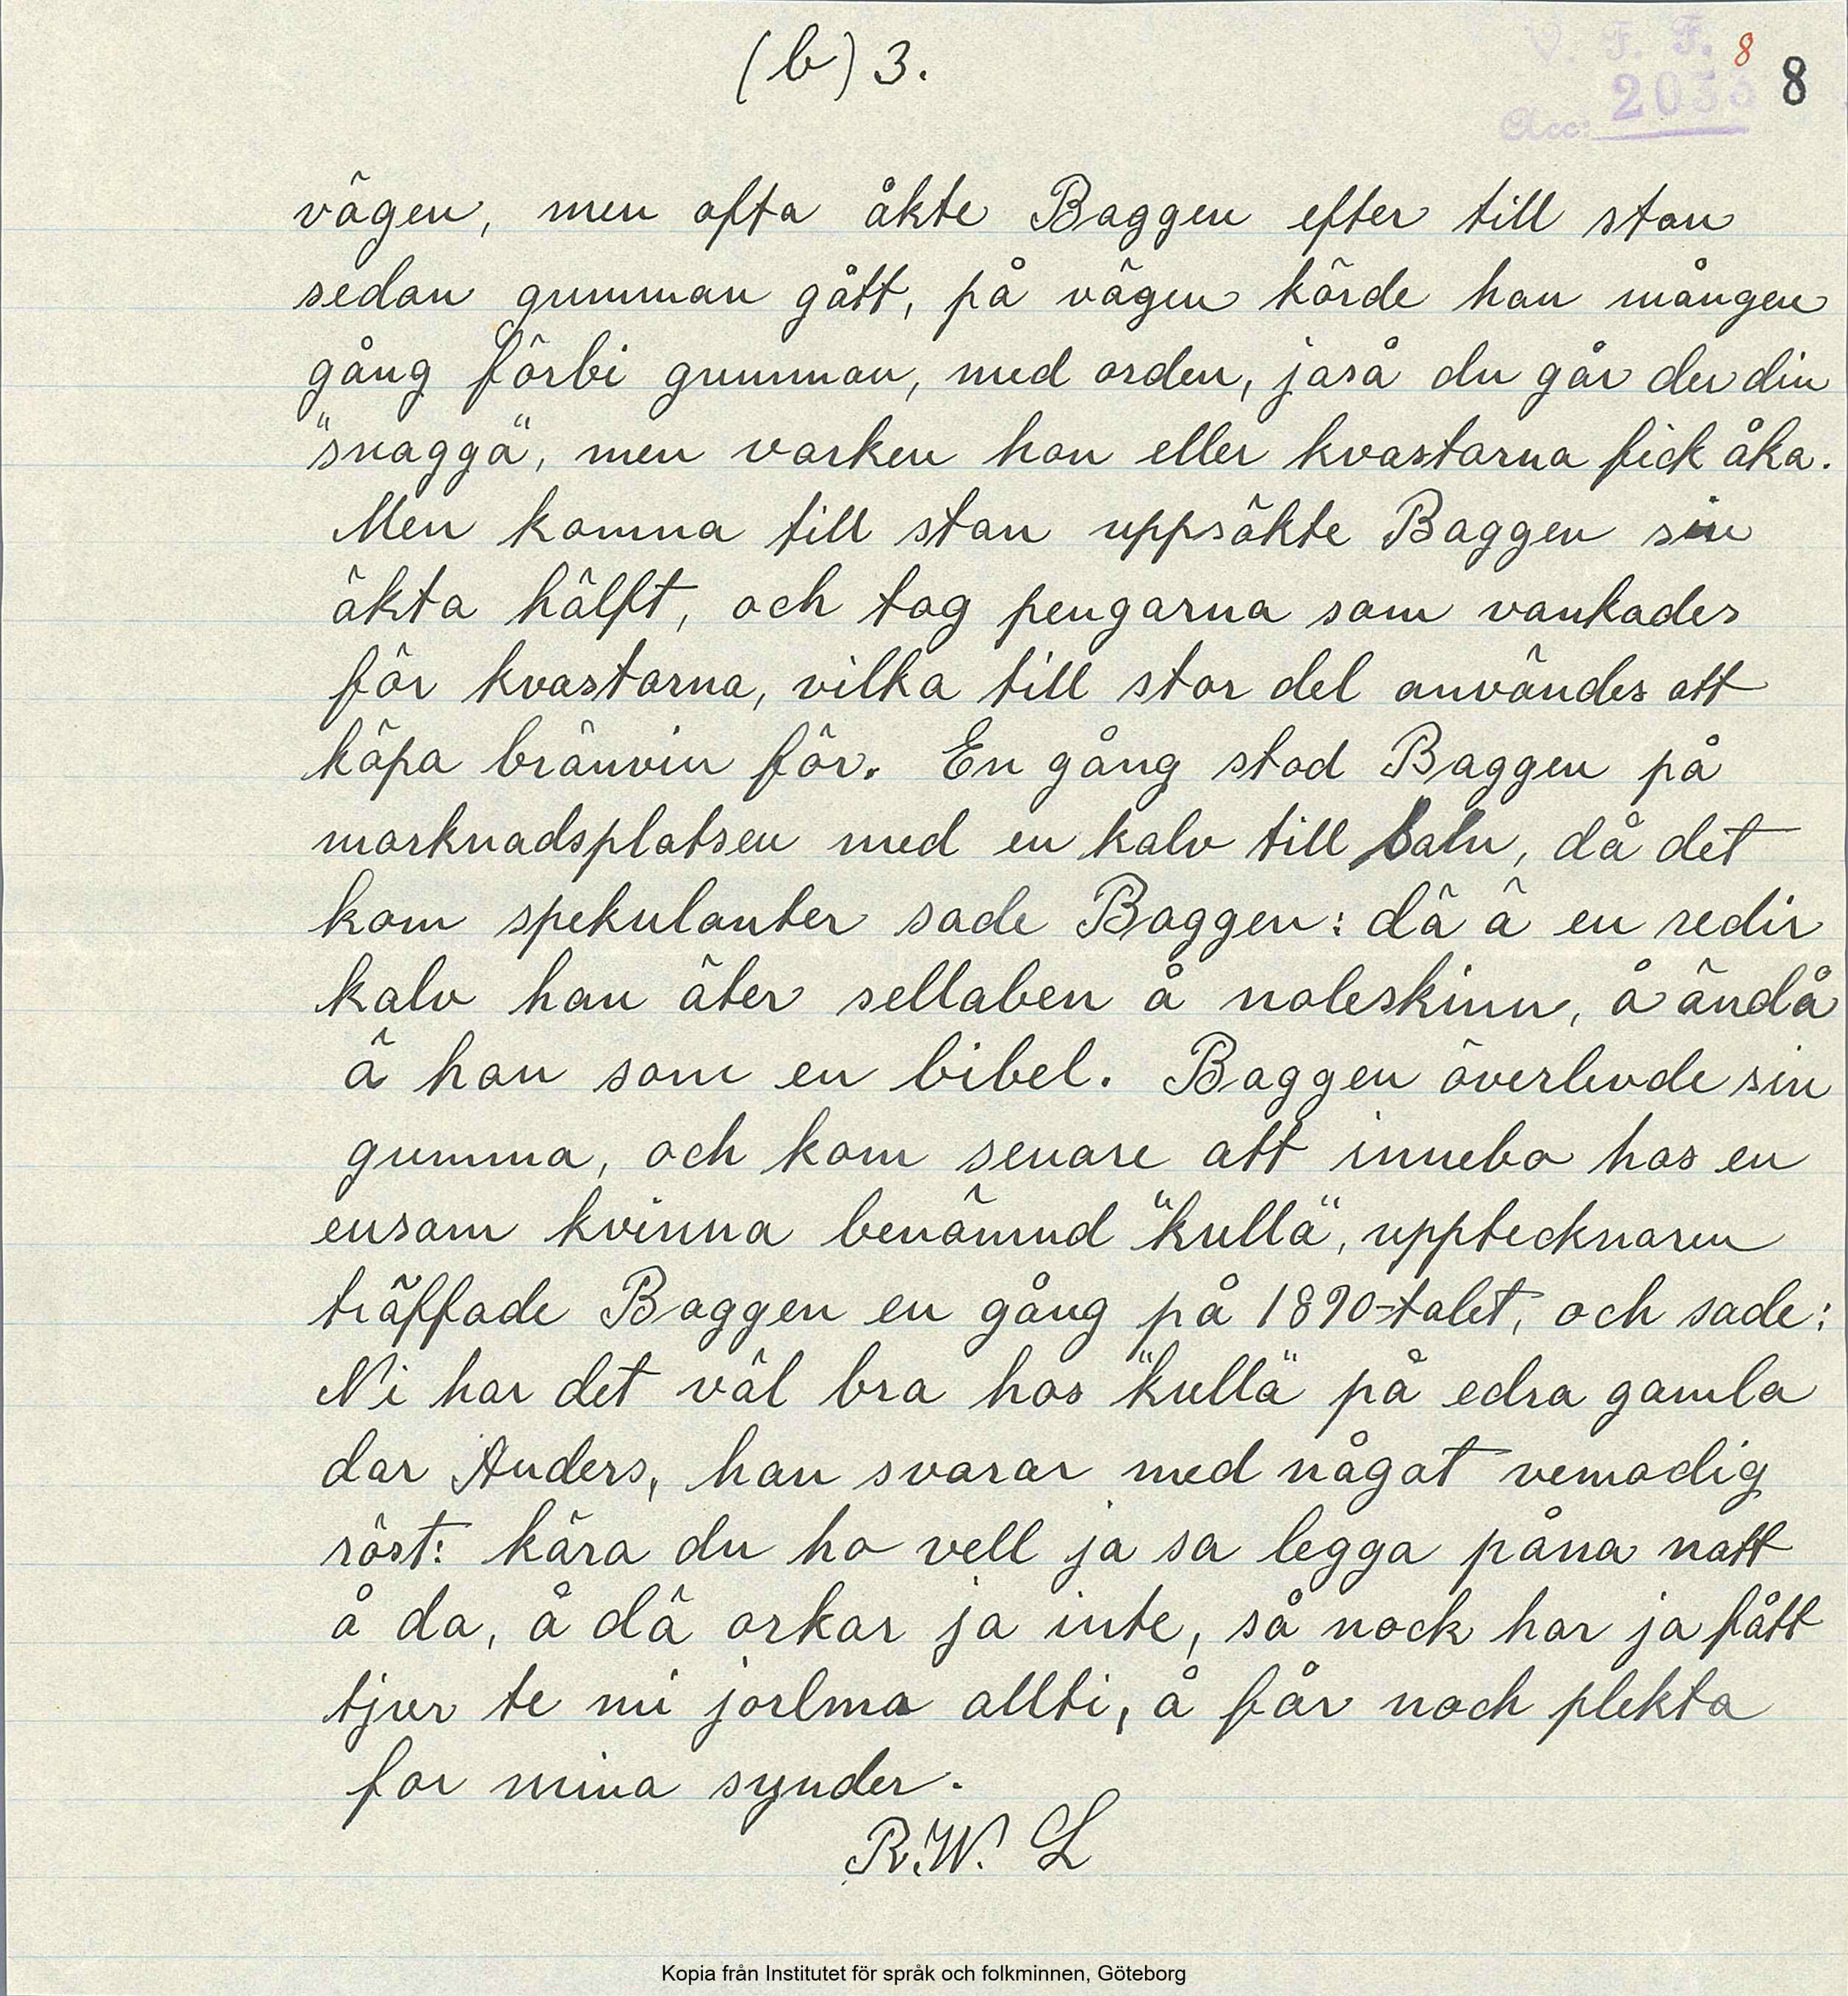 (b) 3.
V. F. F. 8 8
Acc: 2033
vägen, men ofta åkte Baggen efter till stan
sedan gumman gått, på vägen körde han mången
gång förbi gumman, med orden, jaså du går der din
"snagga", men varken hon eller kvastarna fick åka.
Men komna till stan uppsökte Baggen sin
äkta hälft, och tog pengarna som vankades
för kvastarna, vilka till stor del användes att
köpa bränvin för. En gång stod Baggen på
marknadsplatsen med en kalv till salu, då det
kom spekulanter sade Baggen: dä ä en redir
kalv han äter sellaben å noleskinn, å ändå
ä han som en bibel. Baggen överlevde sin
gumma, och kom senare att innebo hos en
ensam kvinna benämnd "kulla", upptecknaren
träffade Baggen en gång på 1890-talet, och sade:
Ni har det väl bra hos "kulla" på edra gamla
dar Anders, han svarar med något vemodig
röst: kära du ho vell ja sa legga påna natt
å da, å dä orkar ja inte, så nock har ja fått
tjver te mi jorlma allti, å får noch plekta
for mina synder.
R.W. L
Kopia från Institutet för språk och folkminnen, Göteborg